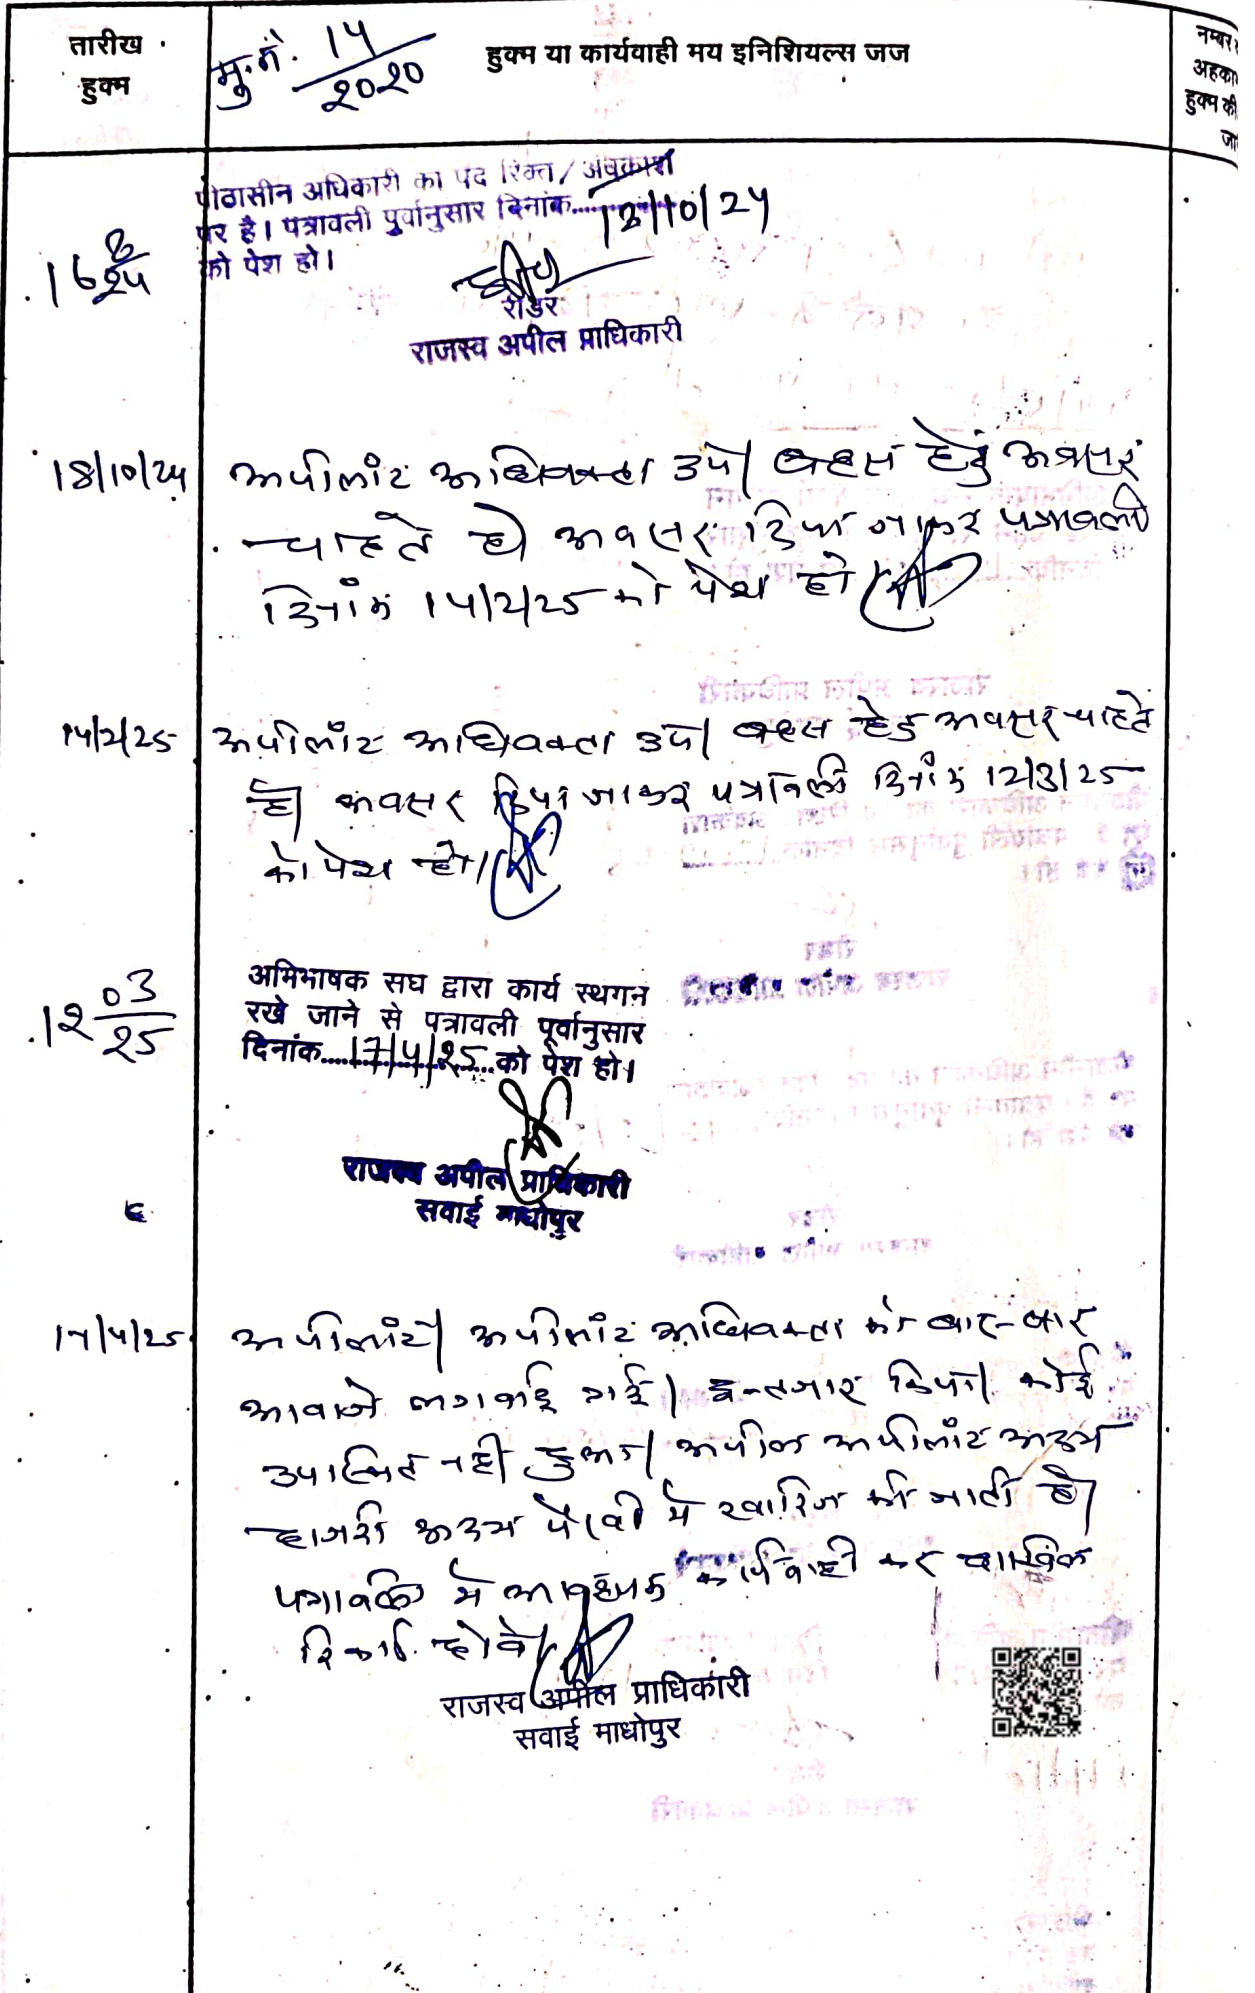 तारीख
हुक्म
मु.नं. 14/2020
हुक्म या कार्यवाही मय इनिशियल्स जज
नम्बर
अहका
हुक्म की
जा
पीठासीन अधिकारी का पद रिक्त/अवकाश
पर है। पत्रावली पुर्वानुसार दिनांक
को पेश हो।
रीडर
राजस्व अपील प्राधिकारी
18/10/24 अपीलांट अधिवक्ता उप। बहस हेतु अवसर
चाहते है। अवसर दिया जाकर पत्रावली
दिनांक 14/2/25 को पेश हो।
14/2/25 अपीलांट अधिवक्ता उप। बहस हेतु अवसर चाहते
है। अवसर दिया जाकर पत्रावली दिनांक 12/3/25
को पेश हो।
12 03/25 अभिभाषक संघ द्वारा कार्य स्थगन
रखे जाने से पत्रावली पूर्वानुसार
दिनांक....17/4/25....को पेश हो।
राजस्व अपील प्राधिकारी
सवाई माधोपुर
17/4/25 अपीलांट। अपीलांट अधिवक्ता को बार-बार
आवाजे लगवाई गई। इन्तजार किया। कोई
उपस्थित नही हुआ। अपील अपीलांट अदम
हाजरी अदम पैरवी मे खारिज की जाती है।
पत्रावली मे आवश्यक कार्यवाही कर दाखिल
रिकार्ड होवे।
राजस्व अपील प्राधिकारी
सवाई माधोपुर